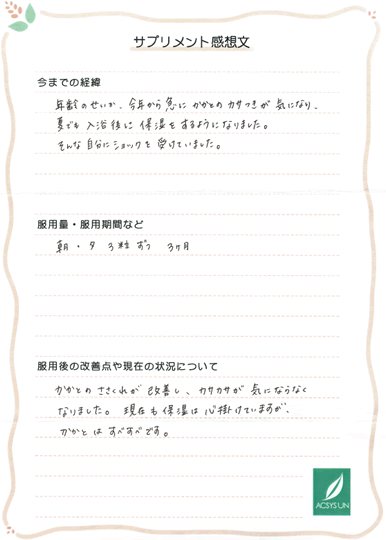 サプリメント感想文
今までの経緯
年齢のせいか、今年から急に かかとの カサつきが 気になり、
夏でも 入浴後に 保湿を するようになりました。
そんな 自分に ショックを 受けていました。
服用量・服用期間など
朝・夕 3粒 ずつ 3ヶ月
服用後の改善点や現在の状況について
かかとの ささくれが 改善し、カサカサが 気にならなく
なりました。現在も 保湿は 心掛けていますが、
かかとは すべすべです。
ACSYSUN